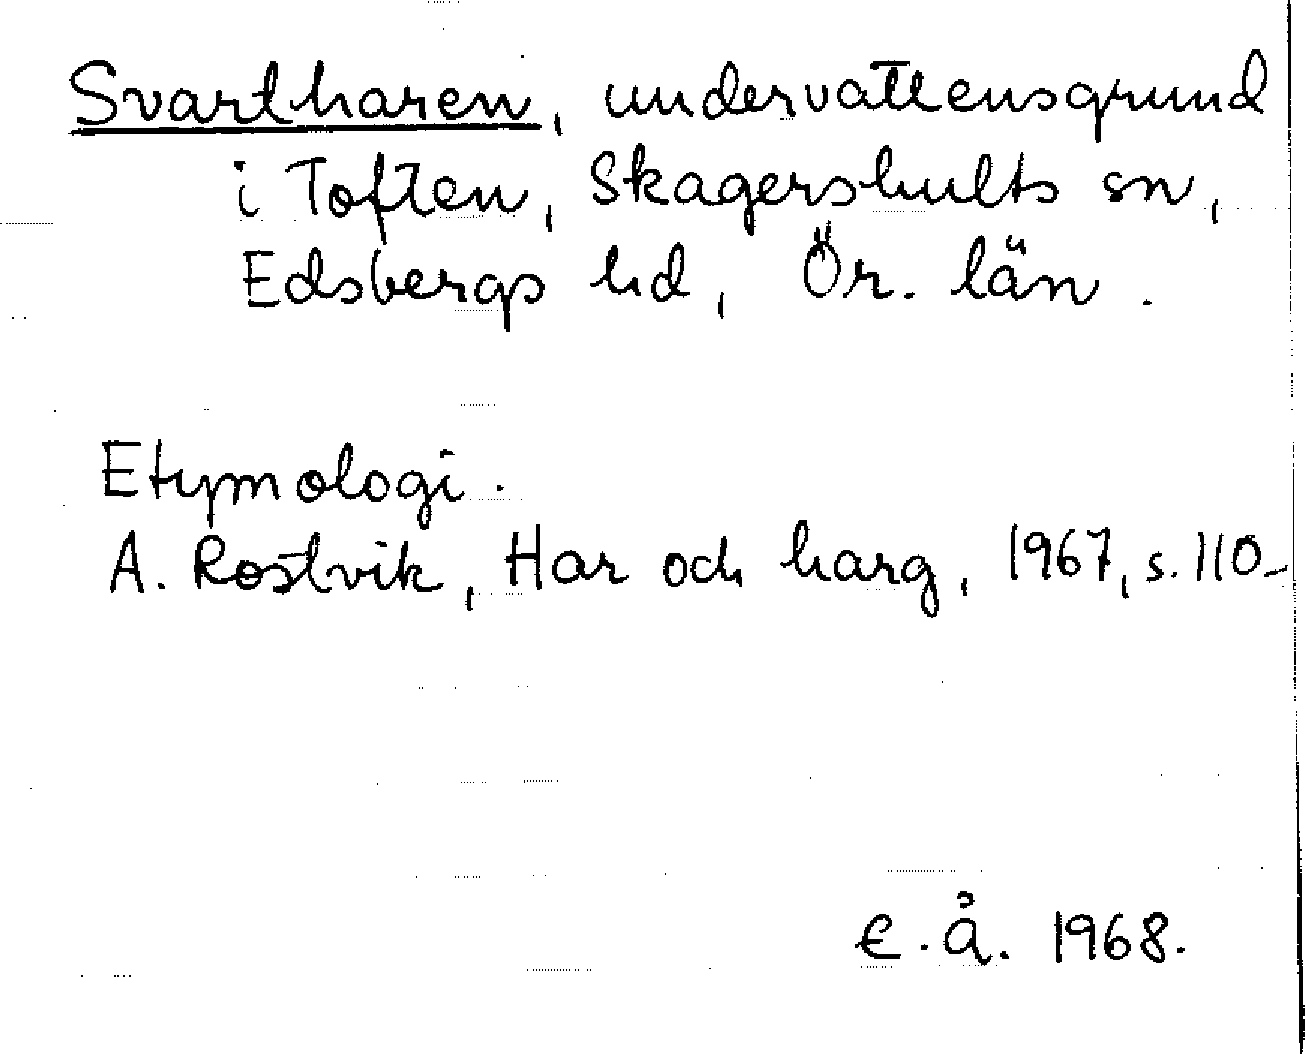 Svartharen, undervattensgrund
i Toften, Skagershults sn,
Edsbergs hd, Ör. län.
Etymologi.
A. Rostvik, Har och harg, 1967, s. 110-
E.Å. 1968.